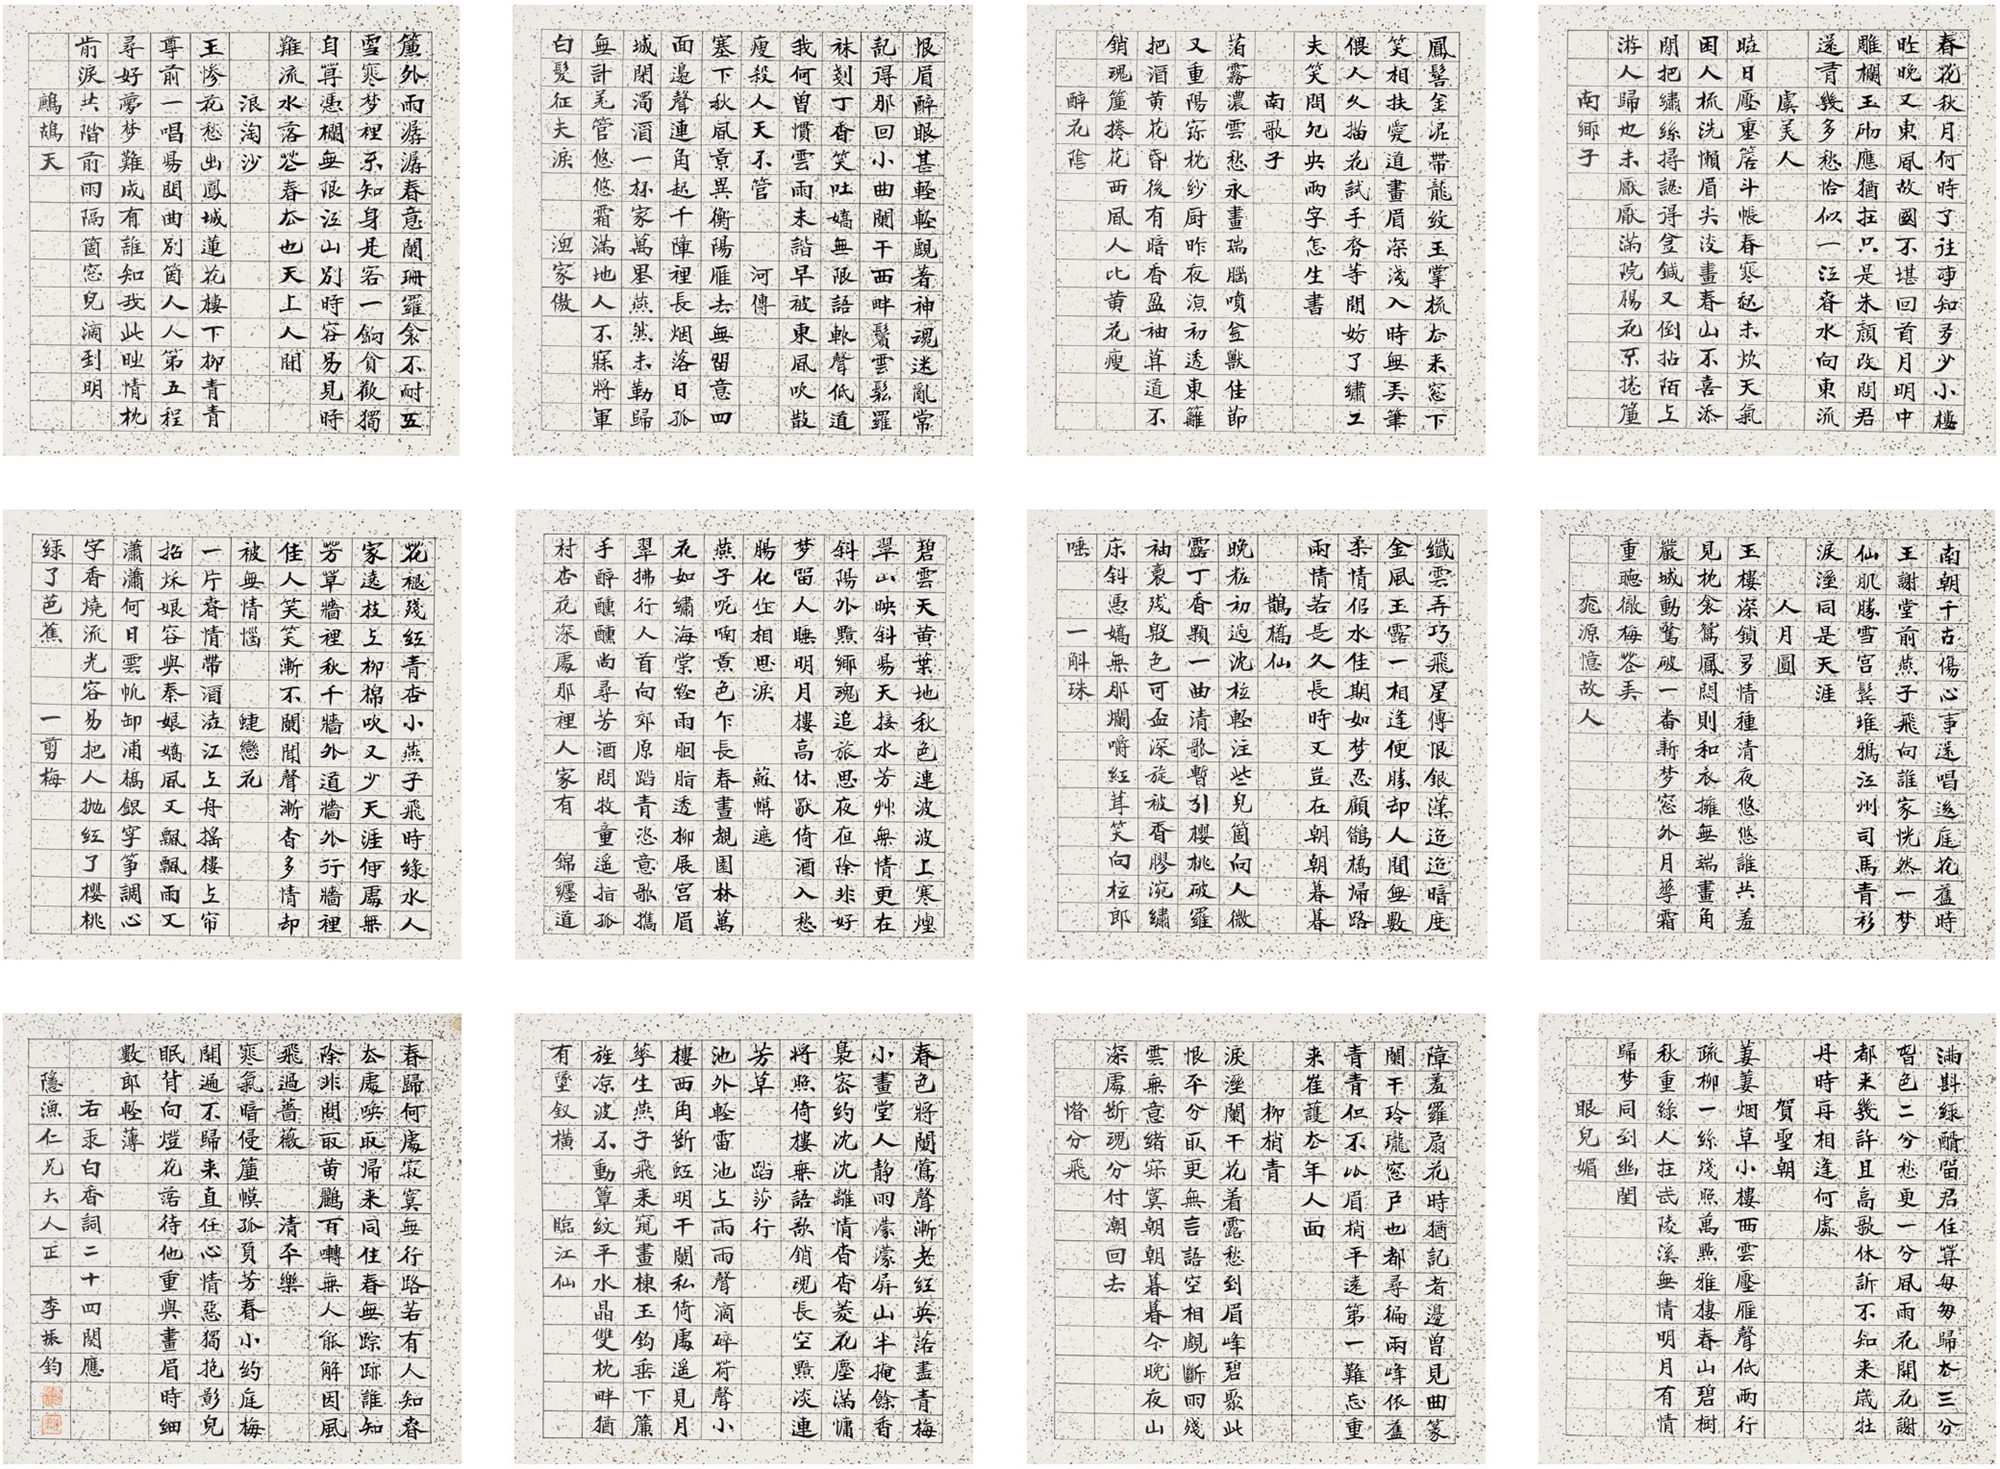 春花秋月何時了往事知多少小樓
昨晚又東風故國不堪回首月明中
雕欄玉砌應猶在只是朱顏改問君
還有幾多愁恰似一江春水向東流
虞美人
晴日壓重簷斗帳春寒起未忺天氣
困人梳洗懶眉尖淡畫春山不喜添
閒把繡絲撏認得金鍼又倒拈陌上
游人歸也未厭厭滿院楊花不捲簾
南鄉子
鳳髻金泥帶龍紋玉掌梳去来窓下
笑相扶愛道畫眉深淺入時無弄筆
偎人久描花試手初等閒妨了繡工
夫笑問夗央兩字怎生書
南歌子
薄霧濃雲愁永晝瑞腦噴金獸佳節
又重陽寳枕紗厨昨夜涼初透東籬
把酒黃花昏後有暗香盈袖莫道不
銷魂簾捲花西風人比黃花瘦
醉花陰
恨眉醉眼甚輕輕覷著神魂迷亂常
記得那回小曲闌干西畔鬢雲鬆羅
袜剗丁香笑吐嬌無限語軟聲低道
我何曾慣雲雨未諧早被東風吹散
瘦殺人天不管 河傳
塞下秋風景異衡陽雁去無留意四
面邊聲連角起千障裡長烟落日孤
城閉濁酒一杯家萬里燕然未勒歸
無計羌管悠悠霜滿地人不寐將軍
白髮征夫淚 漁家傲
簾外雨潺潺春意闌珊羅衾不耐五
更寒梦裡不知身是客一餉貪歡獨
自莫憑欄無限江山別時容易見時
難流水落花春去也天上人間
浪淘沙
玉慘花愁出鳳城蓮花樓下柳青青
尊前一唱陽關曲別箇人人第五程
尋好夢梦難成有誰知我此時情枕
前淚共階前雨隔箇窓兒滴到明
鷓鴣天
南朝千古傷心事還唱後庭花舊時
王謝堂前燕子飛向誰家恍然一梦
仙肌勝雪宮髻堆鴉江州司馬青衫
淚溼同是天涯
人月圓
玉樓深鎖多情種清夜悠悠誰共羞
見枕衾鴛鳳悶則和衣擁無端畫角
嚴城動驚破一番新梦窓外月華霜
重聽徹梅花弄
桃源憶故人
纖雲弄巧飛星傳恨銀漢迢迢暗度
金風玉露一相逢便勝却人間無數
柔情似水佳期如梦忍顧鵲橋歸路
兩情若是久長時又豈在朝朝暮暮
鵲橋仙
晚妝初過沈檀輕注些兒箇向人微
露丁香顆一曲清歌暫引櫻桃破羅
袖裛殘殷色可盃深旋被香醪涴繡
床斜憑嬌無那爛嚼紅茸笑向檀郎
唾 一斛珠
碧雲天黃葉地秋色連波波上寒煙
翠山映斜陽天接水芳艸無情更在
斜陽外黯鄉魂追旅思夜夜除非好
梦留人睡明月樓高休獨倚酒入愁
腸化作相思淚 蘇幙遮
燕子呢喃景色乍長春晝覩園林萬
花如繡海棠經雨胭脂透柳展宮眉
翠拂行人首向郊原蹈青恣意歌攜
手醉醺醺尚尋芳酒問牧童遥指孤
村杏花深處那裡人家有 錦纏道
花褪殘紅青杏小燕子飛時綠水人
家遶枝上柳棉吹又少天涯何處無
芳草牆裡秋千牆外道牆外行牆裡
佳人笑笑漸不聞聲漸杳多情却
被無情惱 蜨戀花
一片春情帶酒澆江上舟搖樓上帘
招秋娘容與秦娘嬌風又飄飄雨又
瀟瀟何日雲帆卸浦橋銀字箏調心
字香燒流光容易把人拋紅了櫻桃
綠了芭蕉 一剪梅
滿斟綠醑留君住莫匆匆歸去三分
春色二分愁更一分風雨花開花謝
都来幾許且高歌休訴不知来歲牡
丹時再相逢何處
賀聖朝
萋萋烟草小樓西雲壓雁聲低兩行
疏柳一絲殘照萬點雅棲春山碧樹
秋重綠人在武陵溪無情明月有情
歸梦同到幽閨
眼兒媚
障羞羅扇花時猶記者邊曾見曲篆
闌干玲瓏窓戶也都尋徧兩峰依舊
青青但不似眉梢平遠第一難忘重
来崔護去年人面
柳梢青
淚溼闌干花着露愁到眉峰碧聚此
恨平分取更無言語空相覷斷雨殘
雲無意緒寂寞朝朝暮暮今晚夜山
深處斷魂分付潮回去
惜分飛
春色將闌鶯聲漸老紅英落盡青梅
小畫堂人静雨濛濛屏山半掩餘香
裊密約沈沈離情杳杳菱花塵滿慵
將照倚樓無語欲銷魂長空黯淡連
芳草 蹈莎行
池外輕雷池上雨雨聲滴碎荷聲小
樓西角斷虹明干闌私倚處遥見月
華生燕子飛来窺畫棟玉鈎垂下簾
旌凉波不動簟紋平水晶雙枕畔猶
有墮釵橫 臨江仙
春歸何處寂寞無行路若有人知春
去處喚取歸来同住春無踪跡誰知
除非問取黃鸝百囀無人能解因風
飛過薔薇 清平樂
寒氣暗侵簾幙孤負芳春小約庭梅
開遍不歸来直任心情惡獨抱影兒
眠背向燈花諾待他重與畫眉時細
數郎輕薄
右录白香詞二十四闋應
隱漁仁兄大人正 李振鈞